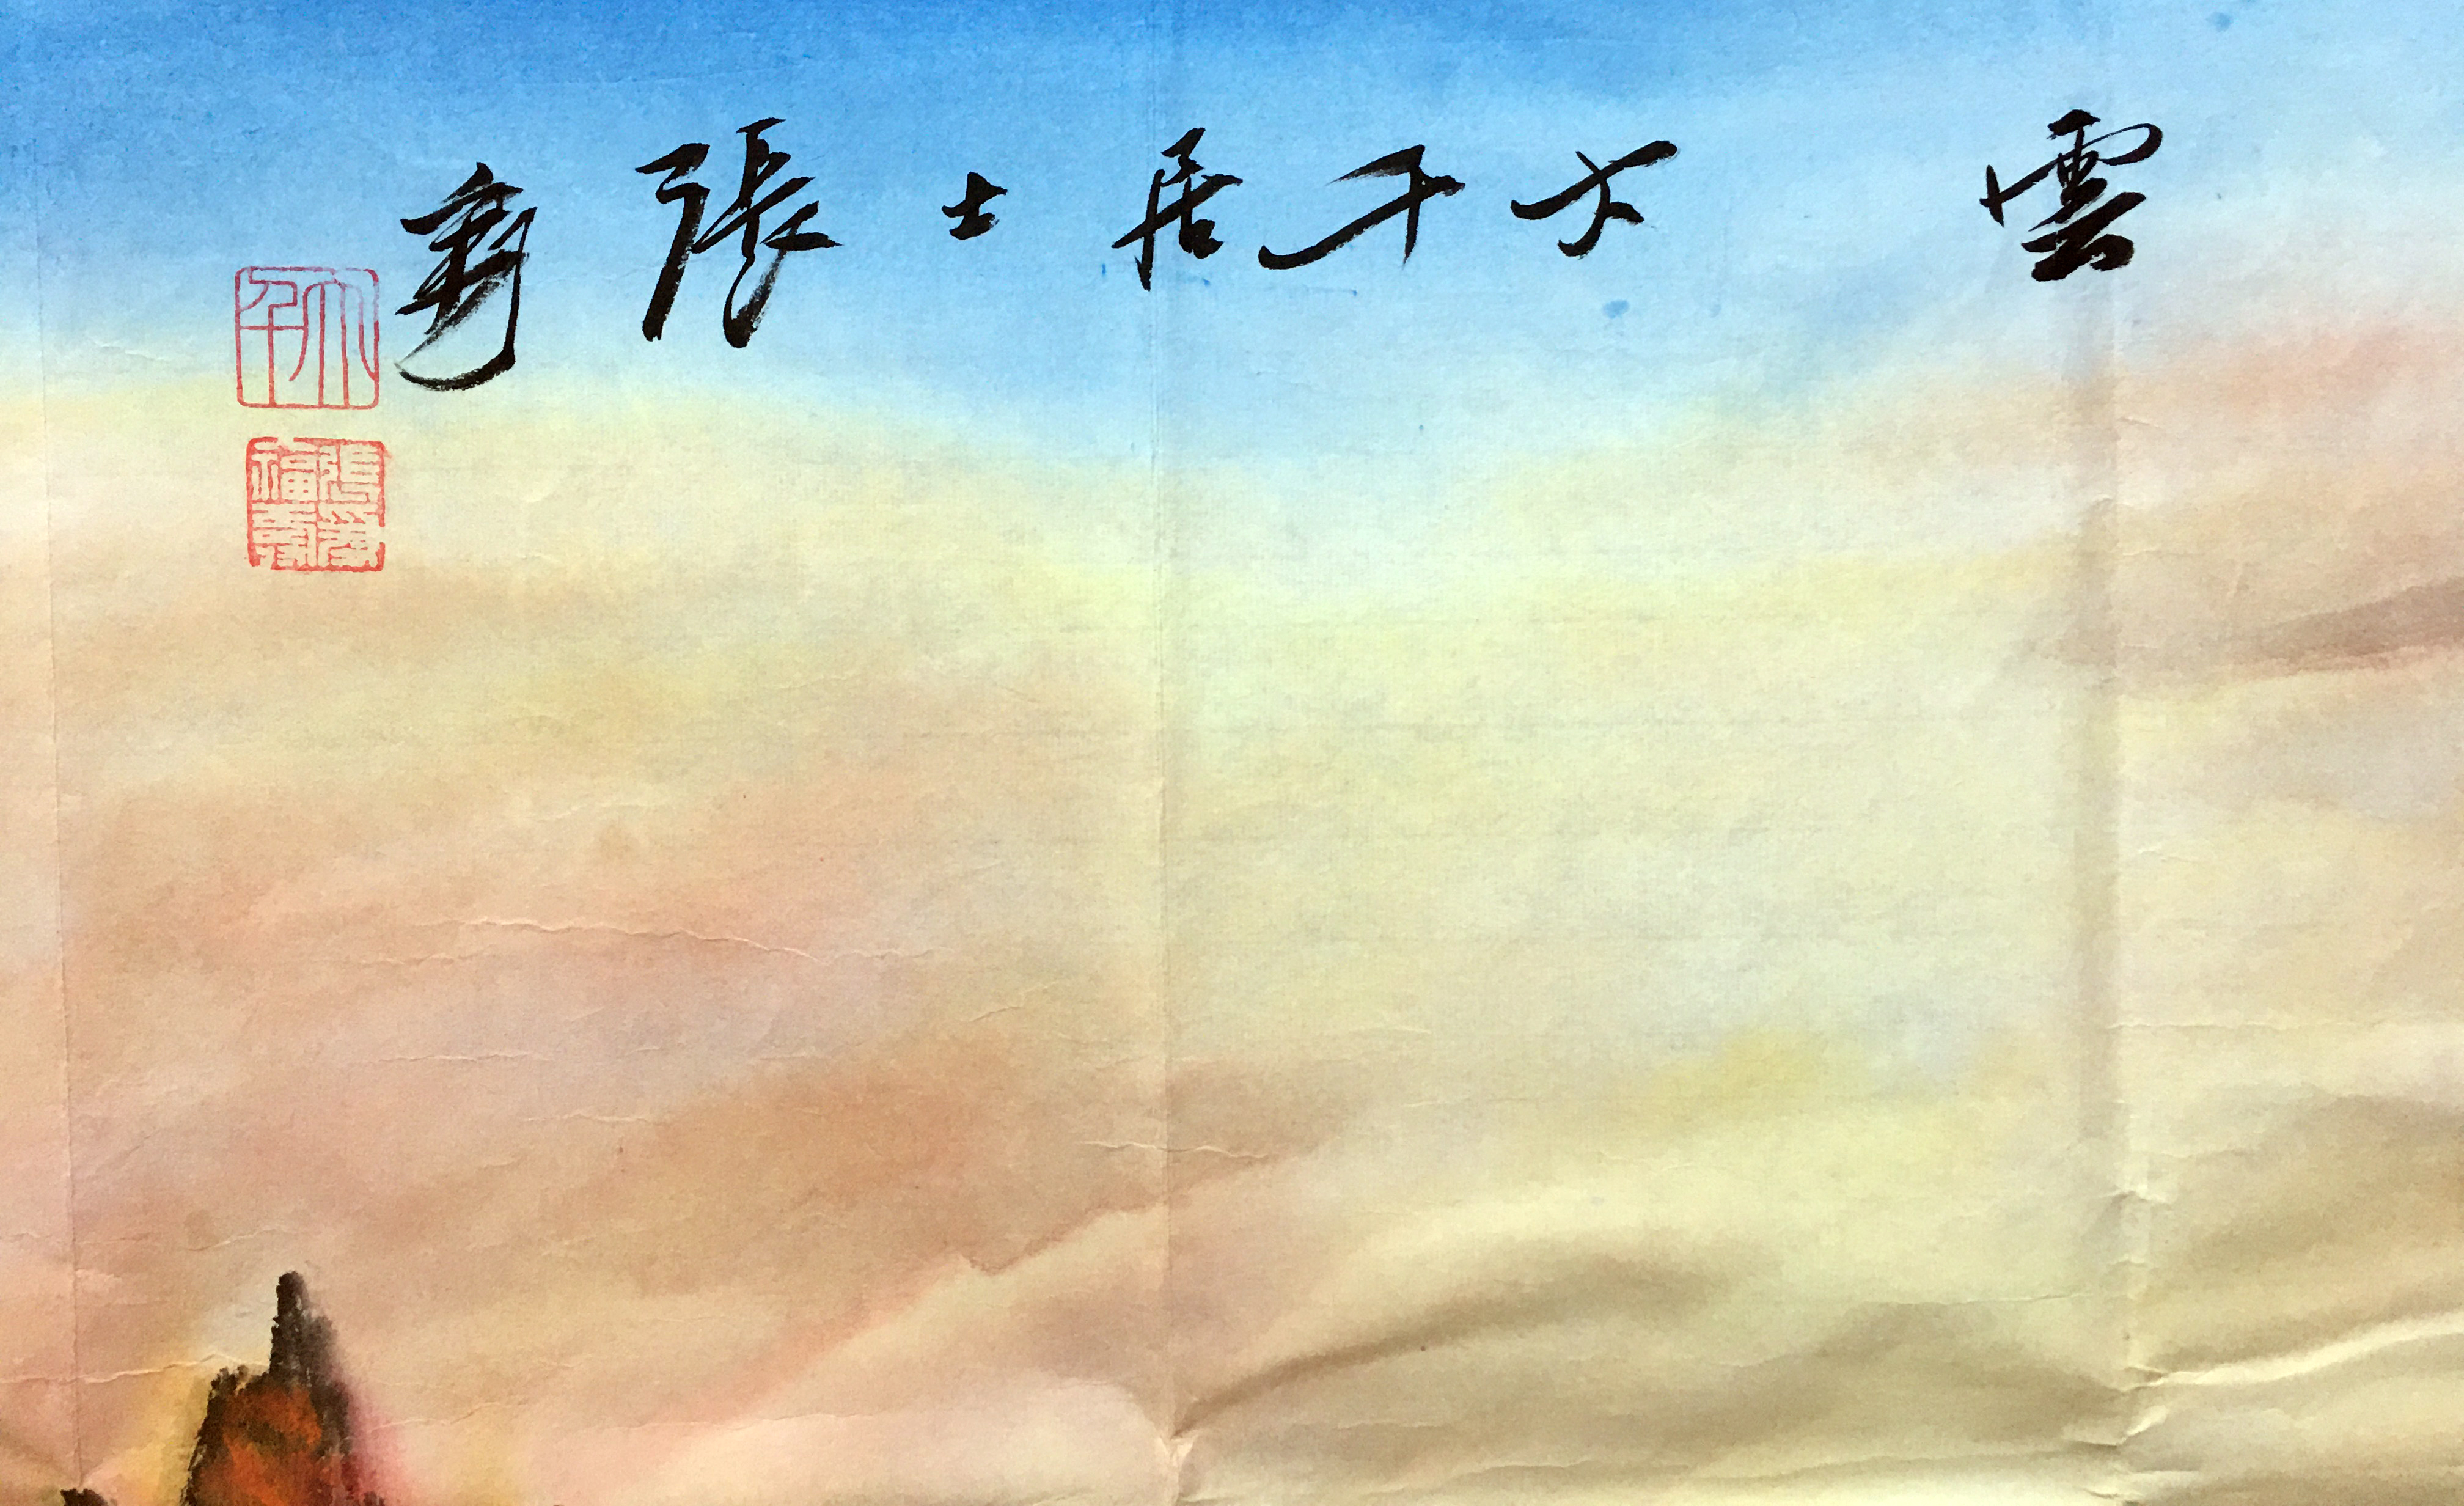 雲 大千居士張爰
大千
張爰福壽